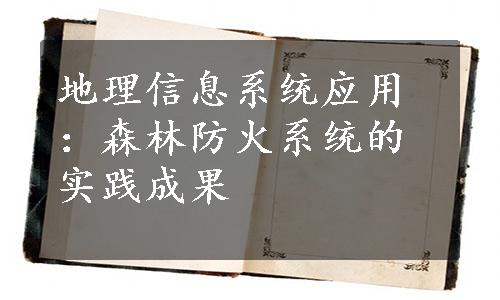 地理信息系统应用
：森林防火系统的
实践成果